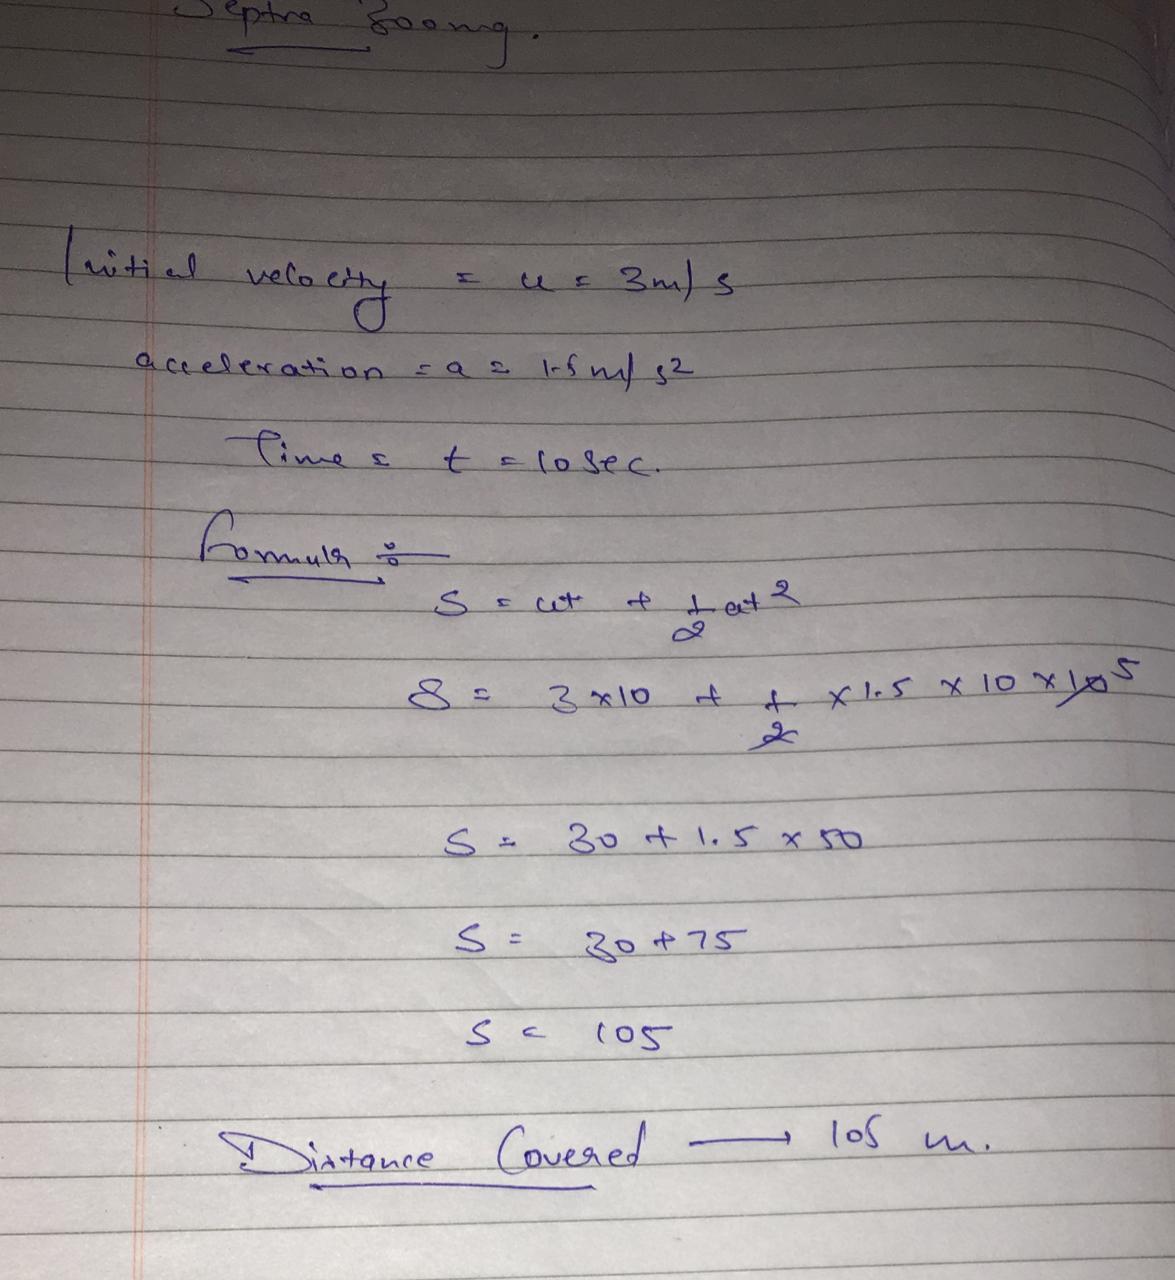 Septra 800mg.
Initial velocity = u = 3m/s
acceleration = a = 1.5 m/s2
Time = t = 10 sec.
Formula ÷
S = ut + 1/2 at2
S = 3 x 10 + 1/2 x 1.5 x 10 x 10 5
S = 30 + 1.5 x 50
S = 30 + 75
S = 105
Distance Covered → 105 m.